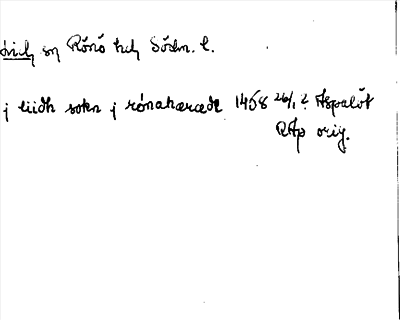 sn Rönö hd Södm. l.
j liidh sokn j rónahæradt 1458 26/1 ? Aspalöt
RAp orig.